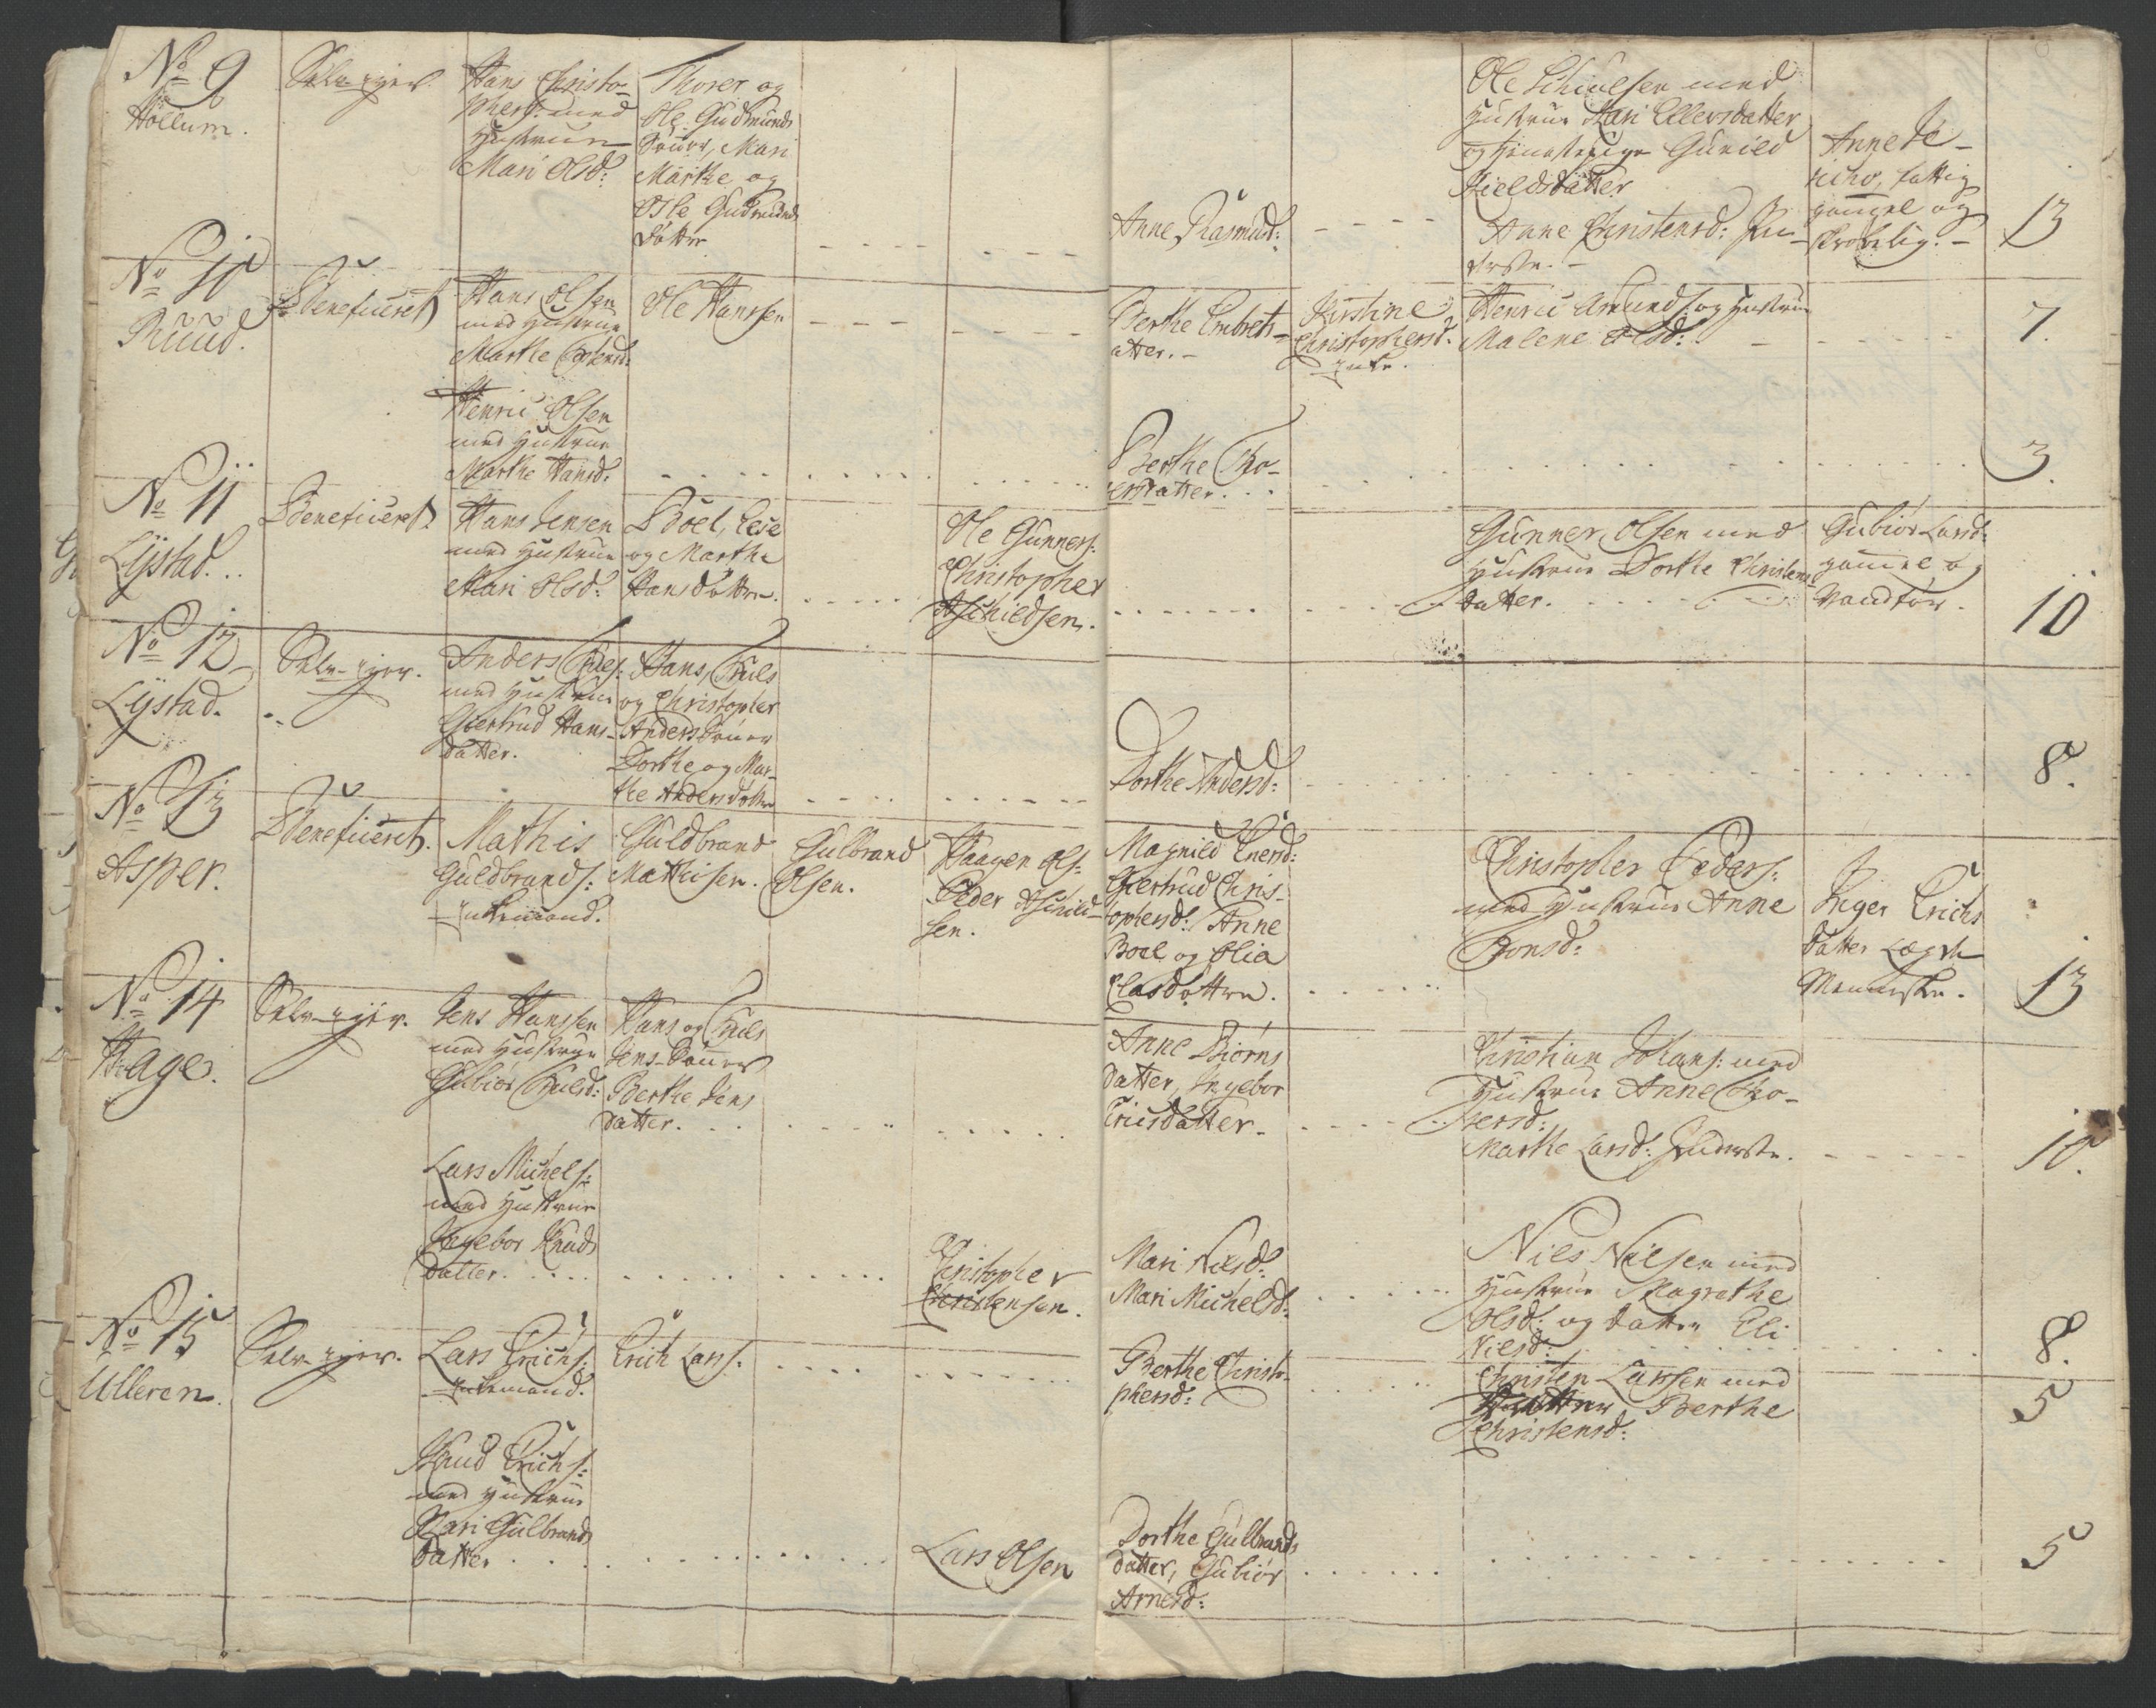 No 9
Hollum.
Selv-eyer.
Hans Christo-
phers: med
Hustrue
Mari Olsd:
Thorer og
Ole Gudmunds
Sønner, Mari
Marthe og
Gudmunds
Døttre
Anne Rasmusd:
Ole med
Hustrue Kari Ellersdatter
og Gunild
Kieldsdatter
Anne Christensd:
Anne
fattig
gammel og
skrøbelig.
13
No 10
Ruud.
Beneficeret
Hans Olsen
med Hustrue
Marthe
Ole Hanssen
Berthe Embrets-
atter.
Kirstine
Christophersd:
Enke.
Henric Amunds: og Hustrue
Malene Olsd:
7.
Henric Olsen
med Hustrue
Marthe Hansd:
Berthe Tho-
ersdatter.
3.
No 11
Lystad.
Beneficeret
Hans Jensen
med Hustrue
Mari Olsd:
Boel, Leie
og Marthe
Hansdøttre.
Ole Gunners:
Christopher
Aschieldsen.
Gunner Olsen med
Hustrue Dorthe Christens-
datter.
Gubiør Larsd:
gammel og
Vandfør.
10
No 12
Lystad.
Selv-eyer.
Anders Truls:
med Hustrue
Giertrud Hans-
datter.
Hans, Truls
og Christopher
Anders Sønner
Dorthe og Mar-
the Andersdøttre
Dorthe Andersd:
8.
No 13
Asper.
Beneficeret.
Mathis
Guldbrands:
Enkemand.
Guldbrand
Mathisen.
Gulbrand
Olsen.
Haagen Ols:
Peder Aschild-
sen.
Magnild Enersd:
Giertrud Chris-
tophersd: Anne
Boel og Olia
Clasdøttre.
Christopher Peders:
med Hustrue Anne
Tronsd:
Inger Erichs
datter Lægds
Menniske.
13
No 14
Hage.
Selv-eyer.
Jens Hanssen
med Hustrue
Gubiør Trulsd:
Hans og Truls
Jens-Sønner
Berthe Jens
datter.
Anne Biørns
datter, Ingebor
Ericsdatter.
Christian Johans: med
Hustrue Anne Tho-
rersd:
Marthe Larsd: Inderste.
10.
Lars Michels:
med Hustrue
Ingebor Knuds
datter.
Christopher
Christensen.
Mari Nilsd:
Mari Michelsd:
Niels Nielsen med
Hustrue Magrethe
Olsd: og datter Eli
Nielsd:
8.
No 15
Ulleren.
Selv-eyer.
Lars Erichs:
Enkemand.
Erich Lars:
Berthe Christo-
phersd:
Christen Larssen med
Berthe
Christensd:
5
Knud Erichs:
med Hustrue
Kari Gulbrands
datter
Lars Olsen
Dorthe Gulbrands
datter, Gubiør
Arnesd:
5